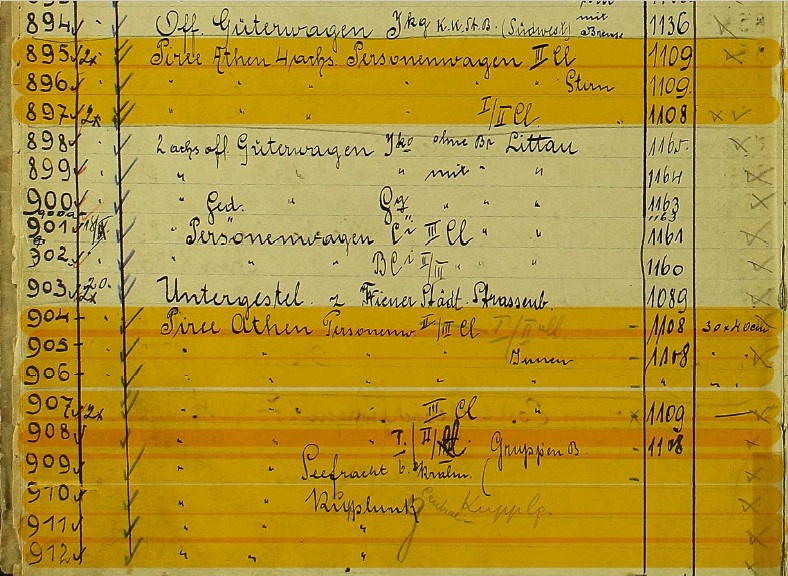 894 Off. Güterwagen Jkg K.K.St.B. (Südwest) mit Bremse 1136
895 2x Piree Athen 4 achs. Personenwagen III Cl 1109
896 " " " " Stirn 1109.
897 2x " " " " I/II Cl " 1108
898 2 achs off Güterwagen Jko ohne Br Littau 1165.
899 " " mit " " 1164
900 " Ged. " Gg " " " 1163
900a 1163
901 " Personenwagen Ci III Cl " " 1161
902 " " " BCi II/III " " " 1160
903 2x Untergestel. z Wiener Städt. Strassenb. 1089
904 Piree Athen Personenw. II/III Cl I/II Cl. - 1108 30x40cm
905 " " " " Innen - 1108 " "
906 " " " " " - " " "
907 2x " " " " III Cl " 1109 —
908 " " " I./II/ Gruppen B. - 1108
909 " " Seefracht
910 " " Kupplung Central Kupplg.
911 " " "
912 " " "